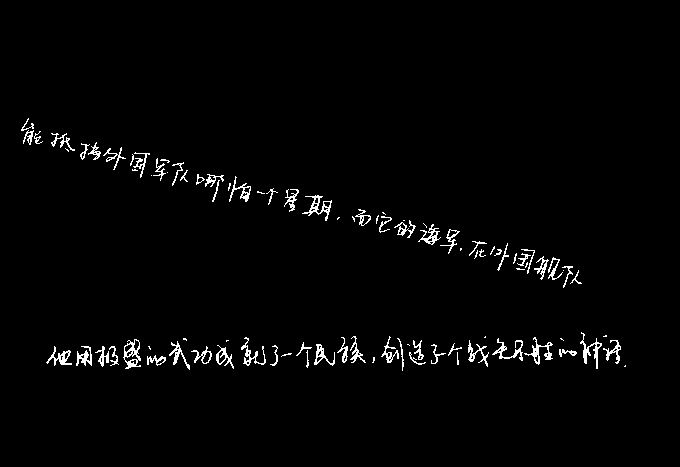 能抵挡外国军队哪怕一个星期，而它的海军，在外国舰队
他用极盛的武功成就了一个民族，创造了个战无不胜的神话.